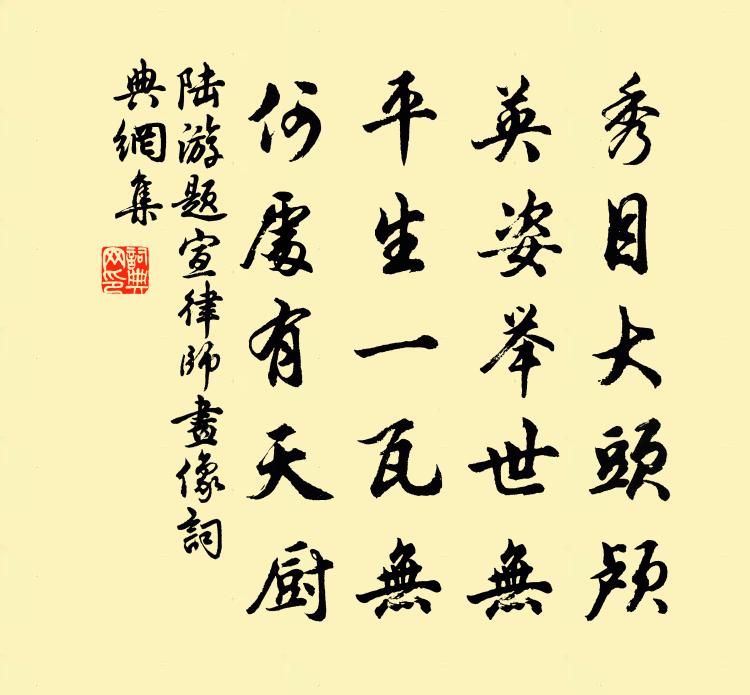 秀目大頭顱
英姿举世無
平生一瓦無
何處有天厨
陆游題宣律師畫像詞
典網集
詞典
网印